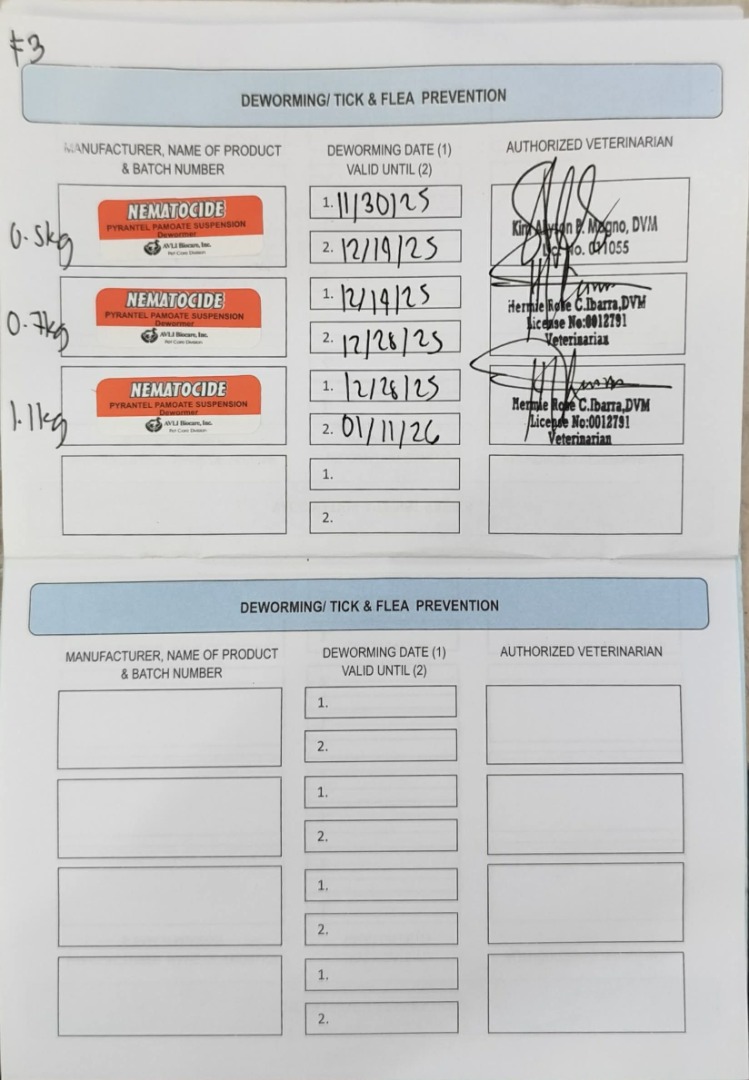 F3
DEWORMING/ TICK & FLEA PREVENTION
MANUFACTURER, NAME OF PRODUCT
& BATCH NUMBER
DEWORMING DATE (1)
VALID UNTIL (2)
AUTHORIZED VETERINARIAN
0.5kg
NEMATOCIDE
PYRANTEL PAMOATE SUSPENSION
Dewormer
AVLI Biocare, Inc.
Pet Care Division
1. 11/30/25
2. 12/19/25
P. Magno, DVM
No. 011055
0.7kg
NEMATOCIDE
PYRANTEL PAMOATE SUSPENSION
Dewormer
AVLI Biocare, Inc.
Pet Care Division
1. 12/14/25
2. 12/28/25
Hermie Rose C.Ibarra,DVM
License No:0012791
Veterinarian
1.1kg
NEMATOCIDE
PYRANTEL PAMOATE SUSPENSION
Dewormer
AVLI Biocare, Inc.
Pet Care Division
1. 12/28/25
2. 01/11/26
Hermie Rose C.Ibarra,DVM
License No:0012791
Veterinarian
1.
2.
DEWORMING/ TICK & FLEA PREVENTION
MANUFACTURER, NAME OF PRODUCT
& BATCH NUMBER
DEWORMING DATE (1)
VALID UNTIL (2)
AUTHORIZED VETERINARIAN
1.
2.
1.
2.
1.
2.
1.
2.